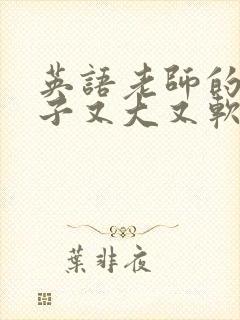 英語老師的
子又大又軟
葉非夜